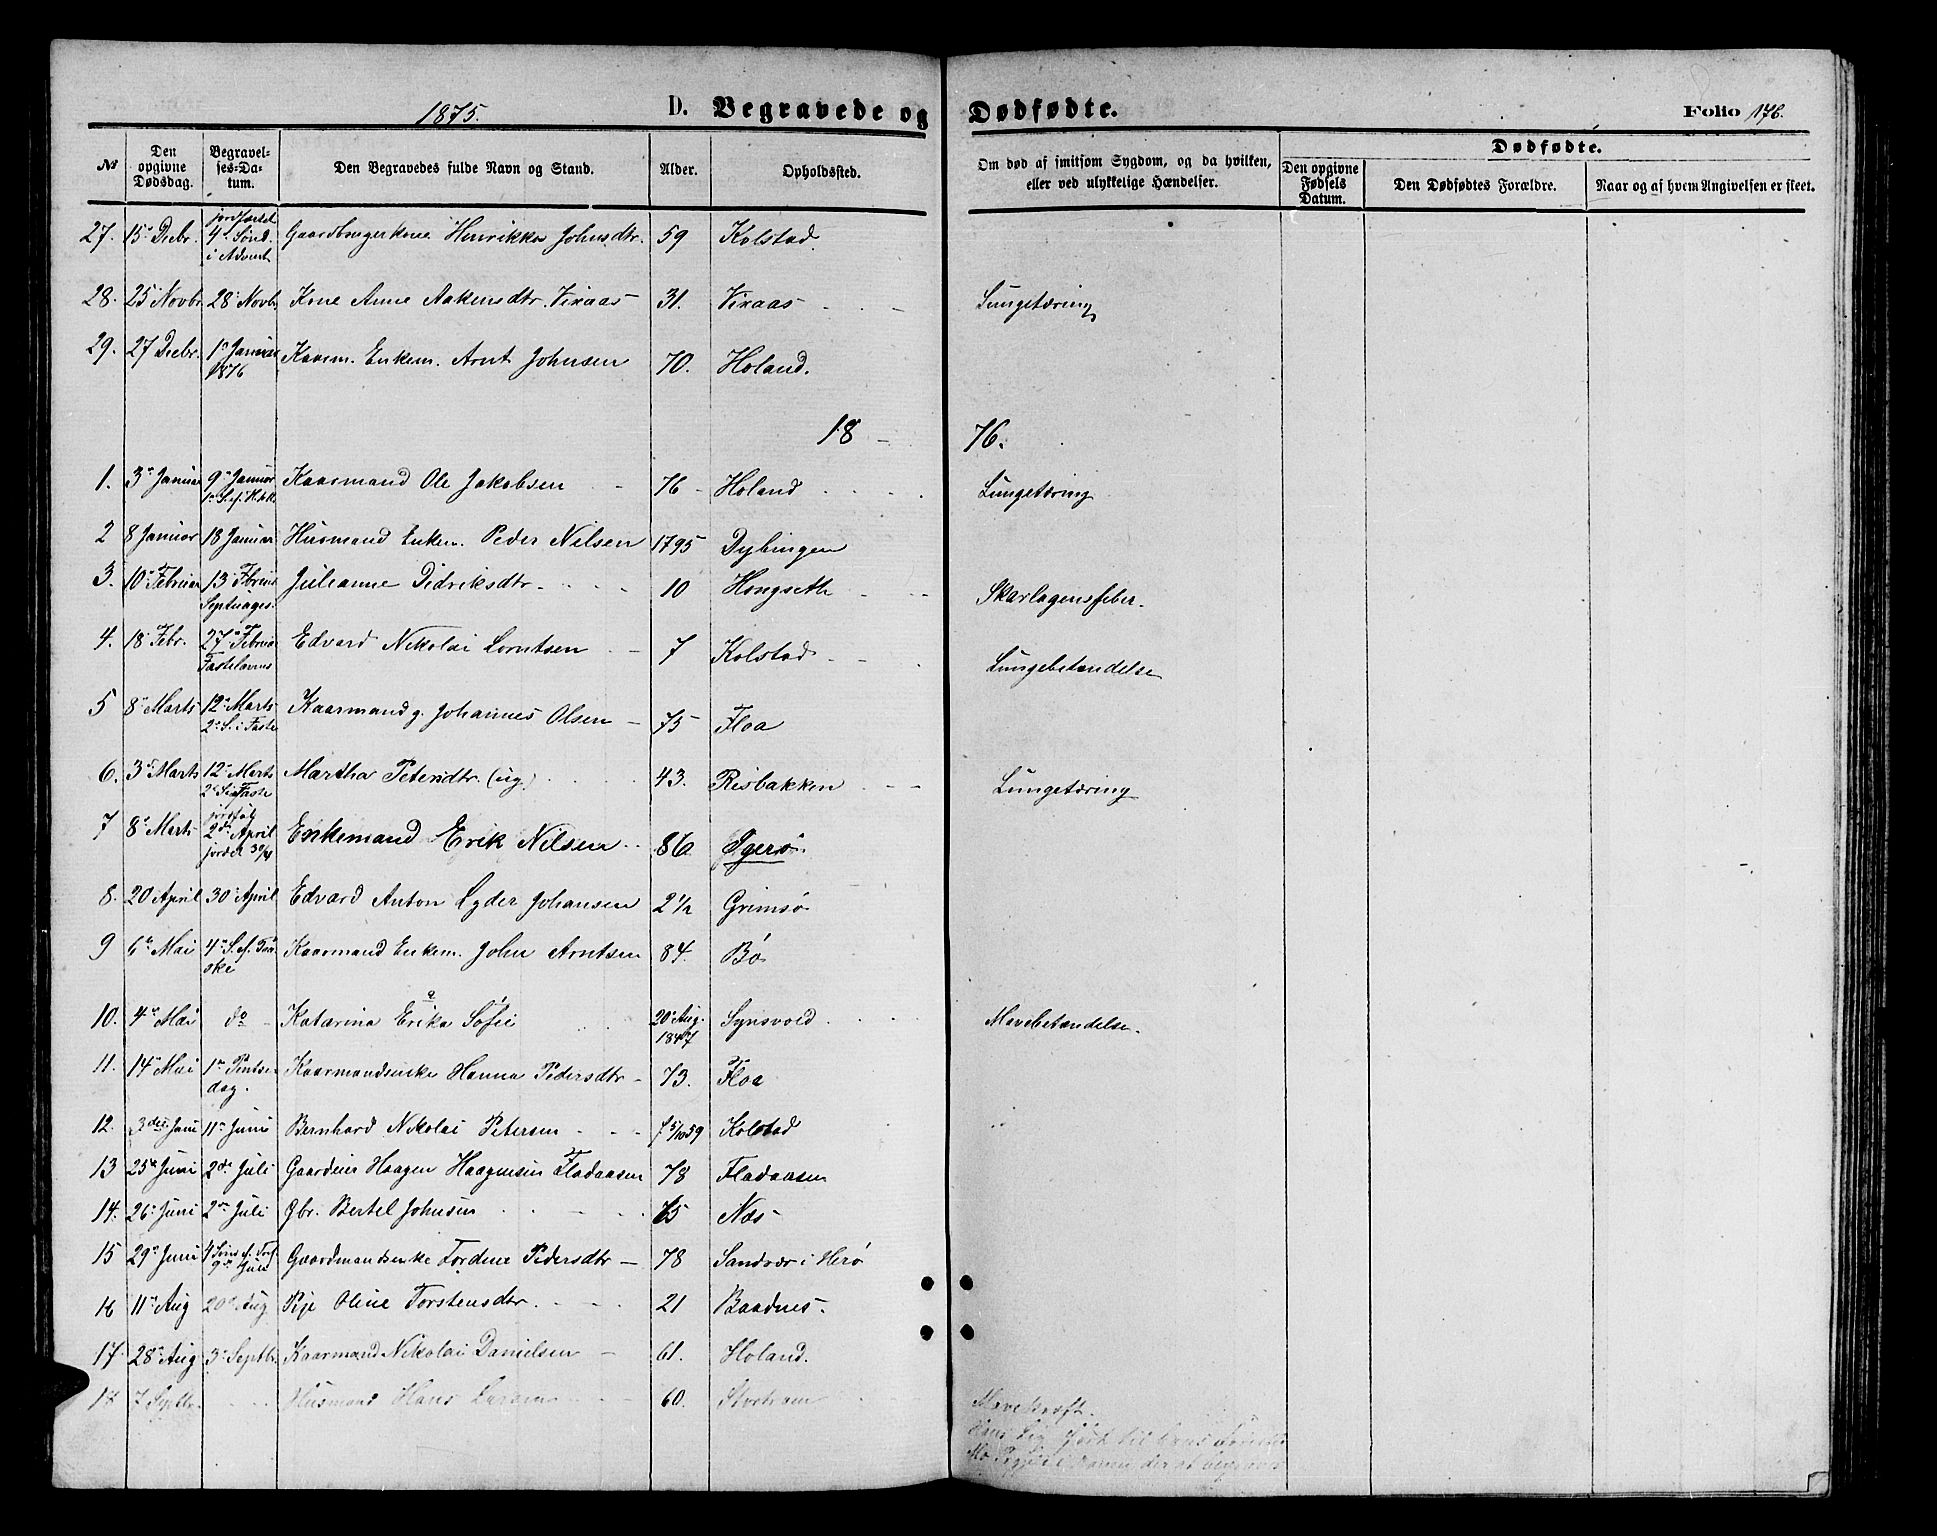 1875.
D. Begravede og Dødfødte.
Folio 176.
№
Den opgivne Dødsdag.
Begravelses-Datum.
Den Begravedes fulde Navn og Stand.
Alder.
Opholdssted.
Om død af smitsom Sygdom, og da hvilken, eller ved ulykkelige Hændelser.
Dødfødte.
Den opgivne Fødsels Datum.
Den Dødfødtes Forældre.
Naar og af hvem Angivelsen er skeet.
27. 15 Decbr. jordfæstet 4 Sønd. i Advent Gaardbrugerkone Henrikka Johnsdtr. 59 Kolstad.
28. 25 Novbr. 28 Novb. Kone Anne Aakensdtr. Vixaas 31. Vixaas Lungetæring
29. 27 Decbr. 1 Januar 1876 Kaarm. Enkem. Arnt Johnsen 70. Holand.
18 76.
1. 3 Januar 9 Januar 1 S. f. H.3.K. Kaarmand Ole Jakobsen 76 Holand Lungetæring
2 8 Januar 18 Januar Husmand Enkem. Peder Nilsen 1795 Dybingen
3. 10 Februar 13 Febrius Septuages. Julianne Didriksdtr 10 Hongseth Skarlagensfeber.
4. 18 Febr. 27 Februa Fastelavns Edvard Nikolai Lorntsen 7 Kolstad Lungebetændelse
5 8 Marts 12 Marts 2 S. i Faste Kaarmand g. Johannes Olsen 75 Floa
6. 3 Marts 12 Marts 2 S i Faste Martha Petersdtr. (ug.) 43. Risbakken Lungetæring
7 8 Marts 2 April jordet 30/4 Enkemand Erik Nilsen 86 Ygerø
8. 20 April 30 April Edvard Anton Lyder Johansen 2 1/2 Grimsø
9 6 Mai 4 S. f. Paaske Kaarmand Enkem. John Arntsen 84. Bø
10. 4 Mai do Katarina Erika Sofie 20 Aug. 1847 Synsvold Mavebetændelse.
11. 14 Mai 1 Pintsedag. Kaarmandsenke Hanna Pedersdtr 73. Floa
12. 3die Juni 11 Juni Bernhard Nikolai Petersen f 5/10 59 Kolstad
13 25 Juni 2de Juli Gaardeier Haagen Haagensen Fladaasen 78 Fladaasen
14. 26 Juni 2 Juli Gbr. Bertel Johnsen 65 Næs
15 29 Juni 4 Sønd. f. Tref. 9 Juli Gaardmandsenke Fordene Pedersdtr 78 Sandvær i Herø
16 11 Aug 20 Aug Pige Oline Torstensdtr. 21 Baadnes.
17. 28 Aug 3 Septbr. Kaarmand Nikolai Danielsen 61. Holand.
18 7 Septbr Husmand Hans Larsen 60. Storhram Mavekræft.
Hans Lig ført til hans